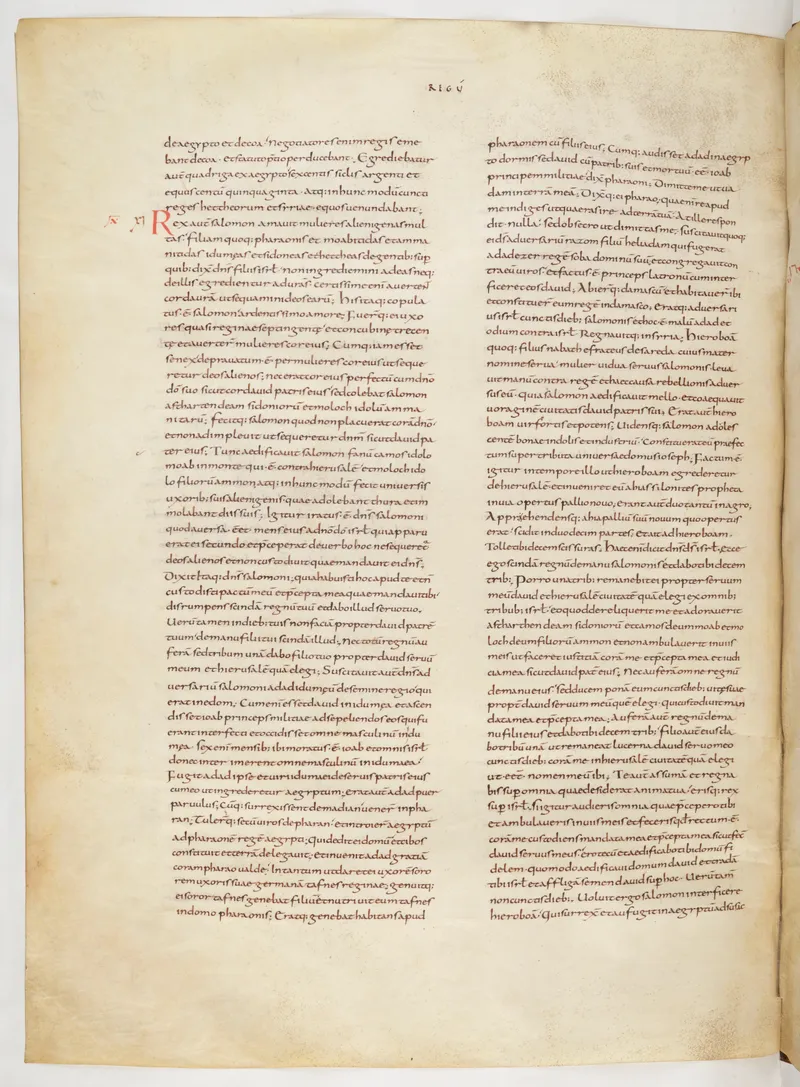 RIGŪ
de aegypto et de coa; negotiatores enim regis eme
bant de coa. et statuto p̄tio perducebant; Egrediebatur
aūt quadriga ex aegypto sexcentis siclis argenti et
equus centū quinquaginta. Atq; in hunc modū cuncti
reges hettheorum et syriae equos uenundabant;
XI
Rex aūt salomon amauit mulieres alienigenas mul
tas. filiam quoq; pharaonis et moabitidas et amma
nitidas idumeas et sidoneas et hettheas de gentib; sup
quib; dix̄ dn̄s filiis isrl̄. non ingrediemini ad eas neq;
de illis egredientur ad uras. certissime eni auertent
corda urā ut sequamini deos earū; His itaq; copula
tus ē salomon ardentissimo amore; Fuer̄q; ei uxo
res quasi reginae septingentę et concubinę trecen
tę et auerterͬ mulieres cor eius; Cumq; iam esset
senex deprauatum ē per mulieres cor eius ut seque
retur deos alienos; nec erat cor eius perfectū cum dn̄o
dō suo sicut cor dauid patris eius sed colebat salomon
astharten deam sidoniorū et moloch idolū amma
nitarū; fecitq; salomon quod non placuerat corā dn̄o
et non adimpleuit ut sequeretur dn̄m sicut dauid pa
ter eius; Tunc aedificauit salomon fanū camos idolo
moab in monte qui ē contra hierusalē et moloch ido
lo filiorū ammon atq; in hunc modū fecit uniuersis
uxorib; suis alienigenis quae adolebant thura et im
molabant diis suis; Igitur iratus ē dn̄s salomoni
quod auersa eēt mens eius a dn̄o dō isrl̄ qui apparu
erat ei secundo et p̄ceperat de uerbo hoc ne sequeret̄
deos alienos et non custodiuit quae mandauit ei dn̄s;
Dixit itaq; dn̄s salomoni, quia habuisti hoc apud te et n̄
custodisti pactū meū et p̄cepta mea quae mandaui tibi
disrumpens scindā regnū tuū et dabo illud seruo tuo.
Uerū tamen in diebus tuis non faciā propter dauid patrē
tuum. de manu filii tui scindā illud; nec totū regnū au
ferā sed tribum unā dabo filio tuo propter dauid seruū
meum et hierusalē quā elegi; Suscitauit aūt dn̄s ad
uersariū salomoni adad idumeū de semine regio qui
erat in edom; Cum eni esset dauid in idumea et ascen
disset ioab princeps militiae ad sepeliendos eos qui fu
erant interfecti et occidisset omne masculinū in idu
mea. sex eni mensib; ibi moratus ē ioab et omnis isrl̄
donec interimerent omne masculinū in idumaea
Fugit adad ipse et uiri idumaei de seruis patris eius
cum eo ut ingrederetur aegyptum; erat aūt adad puer
paruulus; Cūq; surrexissent de madian uener̄ in pha
ran; Tuler̄q; secū uiros de pharan et introier̄ aegyptū
ad pharaonē regē aegypti; Qui dedit ei domū et cibos
constituit et terrā delegauit; et inuenit adad gratiā
coram pharao ualde; In tantum ut daret ei uxorē soro
rem uxoris suae germanā tafnes reginae; genuitq;
ei soror tafnes genebat filiū et nutriuit eum tafnes
in domo pharaonis; Eratq; genebat habitans apud
pharaonem cū filiis eius; Cumq; audisset adad in aegyp
to dormisse dauid cū patrib; suis et mortuū eē ioab
principem militiae dix̄ pharaoni; Dimitte me ut ua
dam in terrā meā; Dix̄q; ei pharao, qua eni re apud
me indiges ut quaeras ire ad terrā tuā; At ille respon
dit nulla; sed obsecro ut dimittas me; suscitauit quoq;
ei ds̄ aduersariū razom filiū heliadam qui fugerat
adadezer regē soba dominū suū et congregauit con
tra eū uiros et factus ē princeps latronū cum inter
ficeret eos dauid; Abier̄q; damascū et habitauer̄ ibi
et constituer̄ eum regē in damasco, eratq; aduersari
us isrl̄ cunctis dieb; salomonis et hoc ē malū adad et
odium contra isrl̄. Regnauitq; in syria; hieroboā
quoq; filius nabath efrateus de sareda. cuius mater
nomine serua mulier uidua seruus salomonis leua
uit manū contra regē et haec causa rebellionis aduer
sus eū. quia salomon aedificauit mello et coaequauit
uoraginē ciuitatis dauid patris sui, Erat aūt hiero
boam uir fortis et potens; Uidensq; salomon adoles
centē bonae indolis et industriū. Constituerat eū p̄fec
tum sup tributa uniuersae domus ioseph; Factum ē
igitur in tempore illo ut hieroboam egrederetur
de hierusalē et inueniret eū ahias silonites propheta
in uia opertus pallio nouo, erant aūt duo tantū in agro,
Apprǣhendensq; ahia palliū suū nouum quo opertus
erat. scidit in duodecim partes; et ait ad hieroboam.
Tolle tibi decem scissuras; Haec eni dicit dn̄s ds̄ isrl̄; ecce
ego scindā regnū de manu salomonis et dabo tibi decem
trib; Porro una trib; remanebit ei propter seruum
meū dauid et hierusalē ciuitatē quā elegi ex omnib;
tribub; isrl̄. eo quod dereliquerit me et adorauerit
astharthen deam sidoniorū et camos deum moab et mo
loch deum filiorū ammon et non ambulauerit in uiis
meis ut faceret iustitiā corā me et p̄cepta mea et iudi
cia mea sicut dauid pat̄ eius; Nec auferā omne regnū
de manu eius. sed ducem ponā eum cunctis dieb; uitę suae
propt̄ dauid seruum meū quē elegi. qui custodiuit man
data mea et p̄cepta mea; Auferā aūt regnū de ma
nu filii eius et dabo tibi decem trib; filio aūt eius da
bo tribū unā ut remaneat lucerna dauid seruo meo
cunctis dieb; corā me in hierusalē ciuitatē quā elegi
ut eēt nomen meū ibi, Te aūt assumā et regna
bis sup omnia quae desiderat anima tua. erisq; rex
sup isrl̄. Si igitur audieris omnia quae p̄cepero tibi
et ambulaueris in uiis meis et feceris qd̄ rectum ē
corā me custodiens mandata mea et p̄cepta mea sicut fec̄
dauid seruus meus. ero tecū et aedificabo tibi domū fi
delem. quomodo aedificaui domum dauid et tradā
tibi isrl̄ et affligā semen dauid sup hoc. Uerū tam̄
non cunctis dieb;. Uoluit ergo salomon interficere
hieroboā. Qui surrex̄ et aufugit in aegyptū ad susac